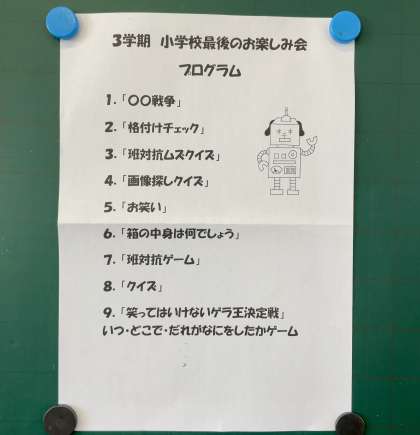 3学期 小学校最後のお楽しみ会
プログラム
1.「〇〇戦争」
2.「格付けチェック」
3.「班対抗ムズクイズ」
4.「画像探しクイズ」
5.「お笑い」
6.「箱の中身は何でしょう」
7.「班対抗ゲーム」
8.「クイズ」
9.「笑ってはいけないゲラ王決定戦」
いつ・どこで・だれがなにをしたかゲーム